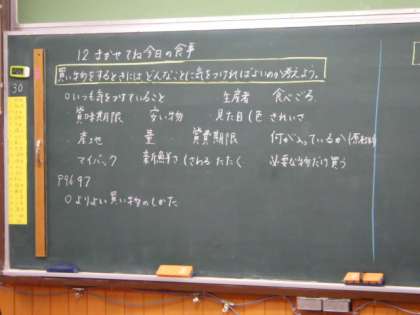 12 まかせてね今日の食事
買い物をするときには どんなことに気をつければよいのか考えよう。
○いつも気をつけていること 生産者 食べごろ
・賞味期限 安い物 見た目(色 きれいさ
・産地 量 消費期限 何が入っているか(原材料
マイバック 新鮮さ (さわる たたく 必要な物だけ買う
P96 97
○よりよい買い物のしかた
30